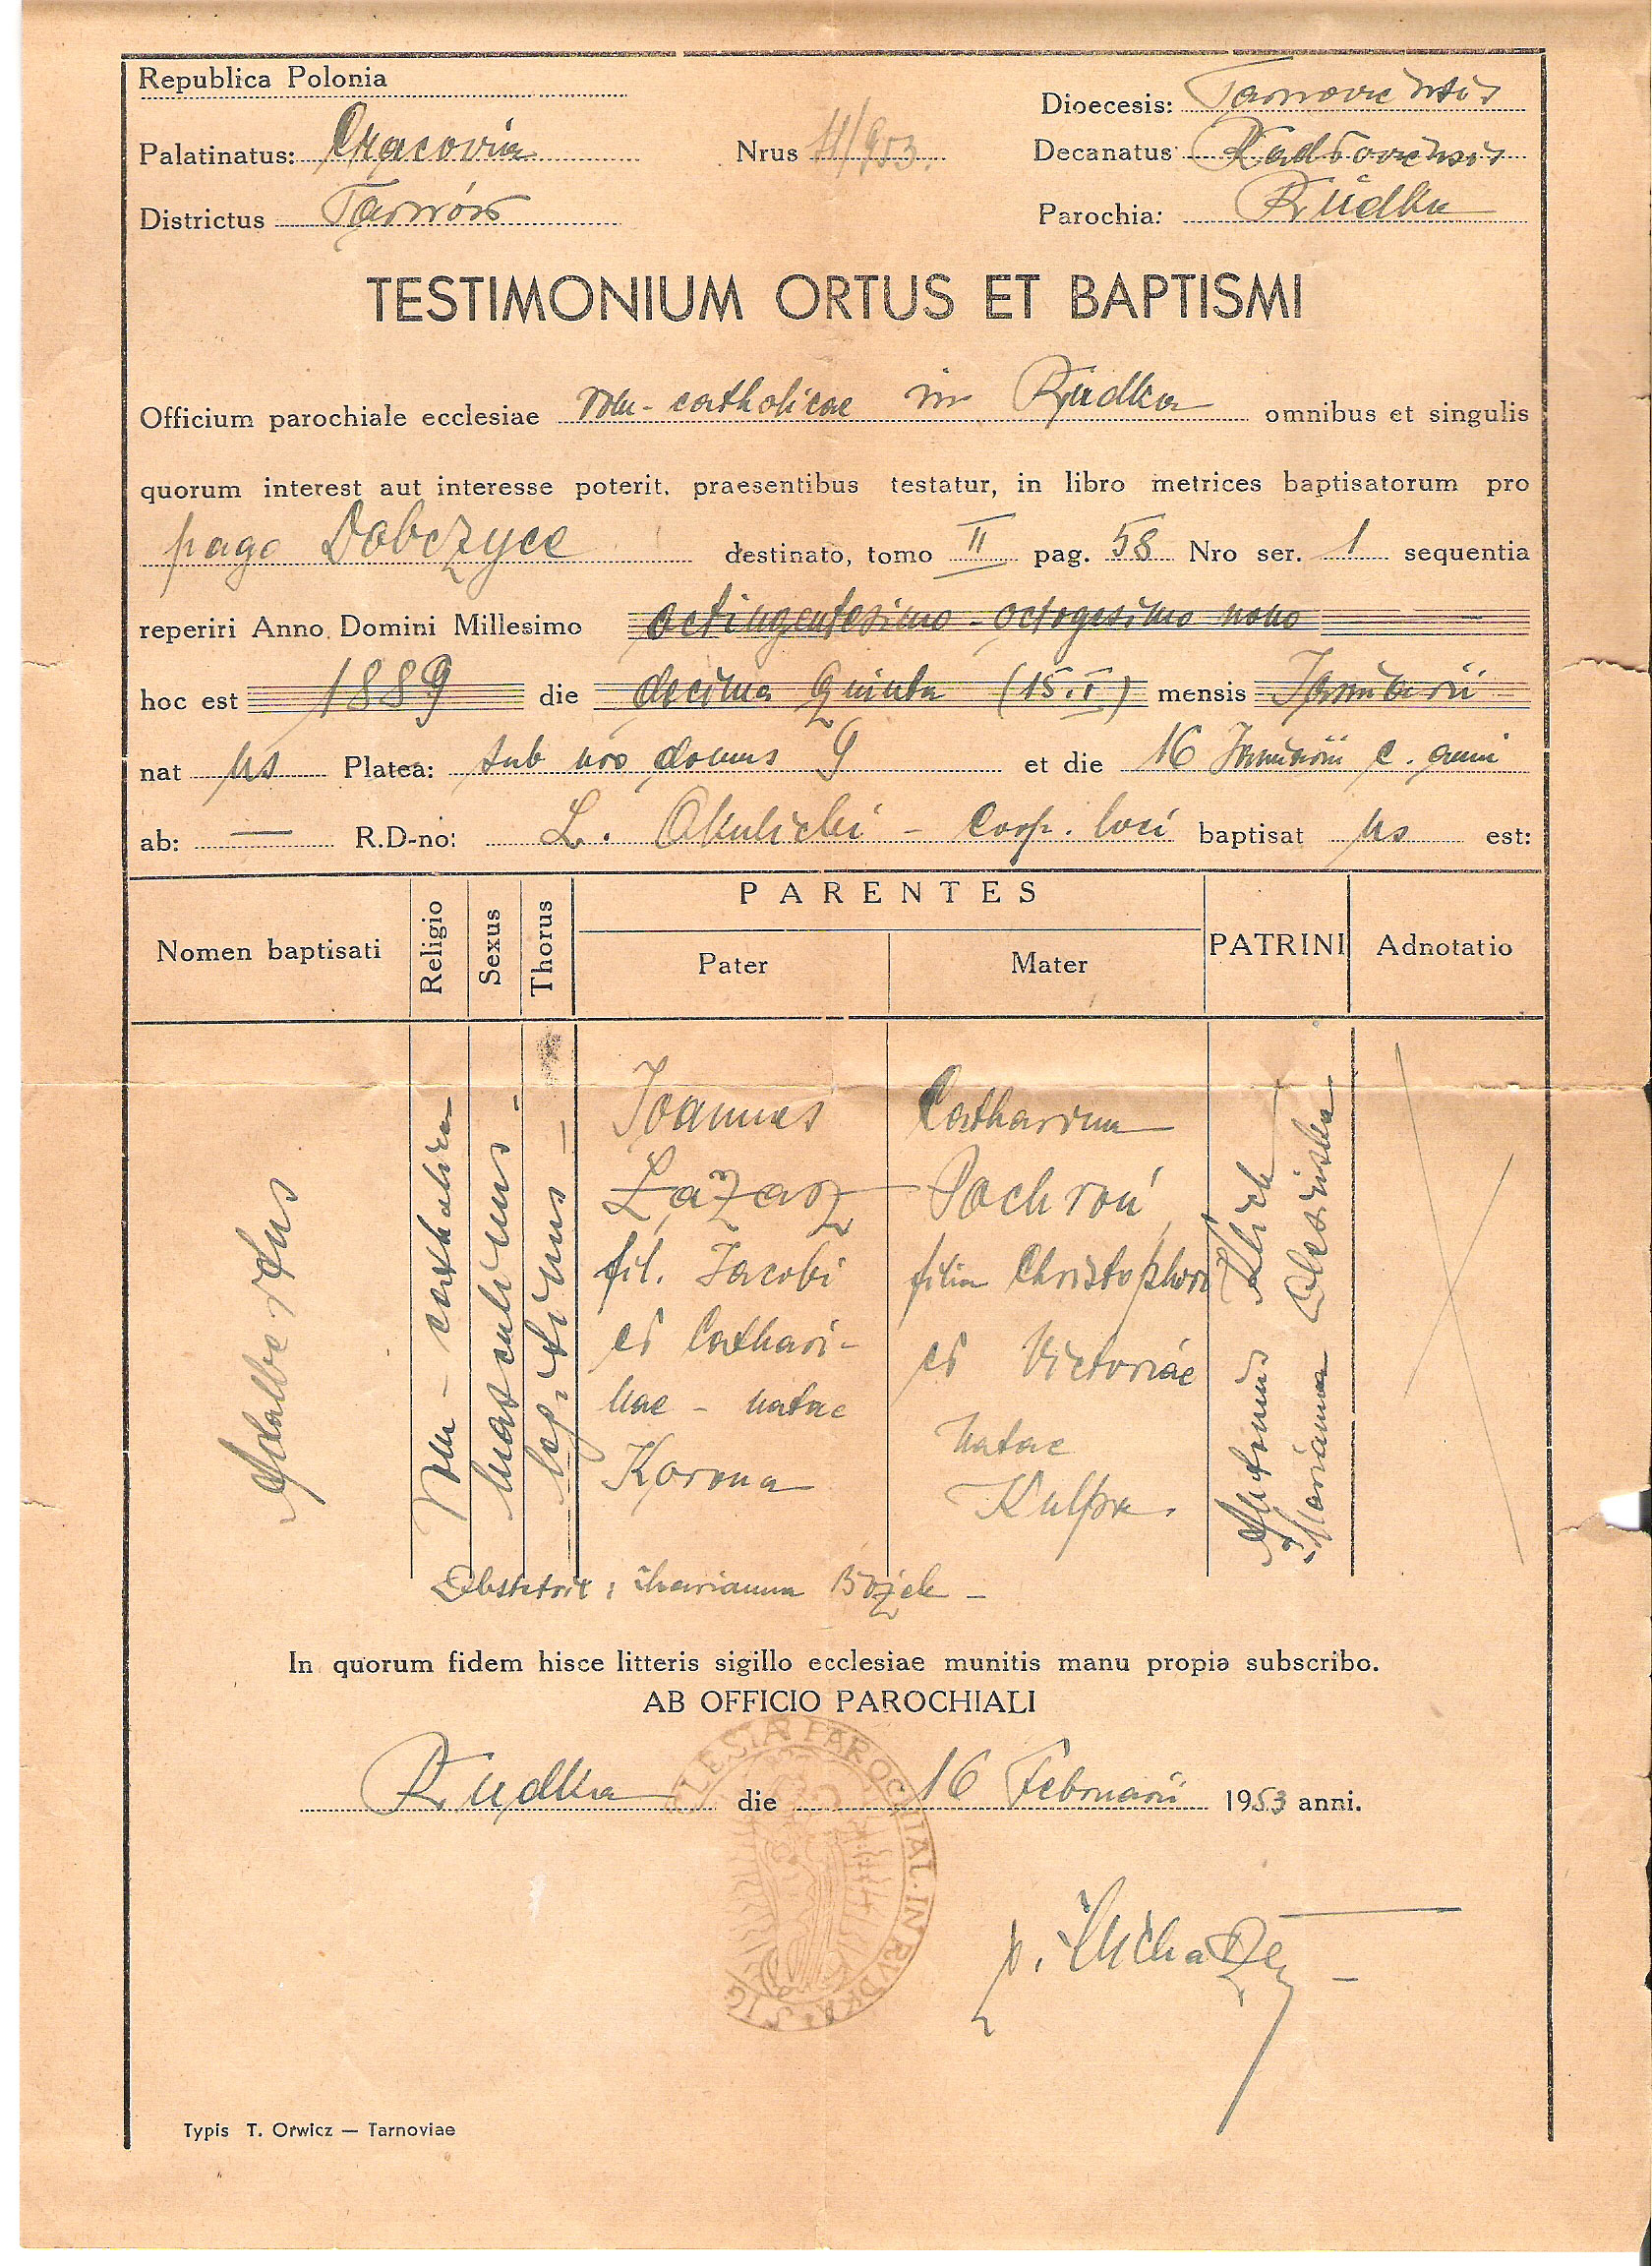 Republica Polonia
Dioecesis: Tarnoviensis
Palatinatus: Cracovia Nrus 11/953. Decanatus Radłoviensis
Districtus Tarnów Parochia: Rudka
TESTIMONIUM ORTUS ET BAPTISMI
Officium parochiale ecclesiae rom-catholicae in Rudka omnibus et singulis
quorum interest aut interesse poterit. praesentibus testatur, in libro metrices baptisatorum pro
pago Dobczyce destinato, tomo II pag. 58 Nro ser. 1 sequentia
reperiri Anno Domini Millesimo octingentesimo - octogesimo nono
hoc est 1889 die decima quinta (15.I) mensis Januarii
nat us Platea: sub nro domus 9 et die 16 Januarii c. anni
ab: — R.D-no: L. Okulicki - Coop. loci baptisat us est:
PARENTES
Nomen baptisati Religio Sexus Thorus Pater Mater PATRINI Adnotatio
Adalbertus
rom - catholica
masculinus -
legitimus -
Joannes
Łazarz
fil. Jacobi
et Cathari-
nae - natae
Korona
Catharina
Pochroń
filia Christophori
et Victoriae
natae
Kulpa.
Antonius Klich
Marianna Olesińska
Obstetrix: Marianna Bożek -
In quorum fidem hisce litteris sigillo ecclesiae munitis manu propia subscribo.
AB OFFICIO PAROCHIALI
Rudka die 16 Februarii 1953 anni.
ECLESIÆ PAROCHIAL. IN RVDKA SIG
Typis T. Orwicz — Tarnoviae